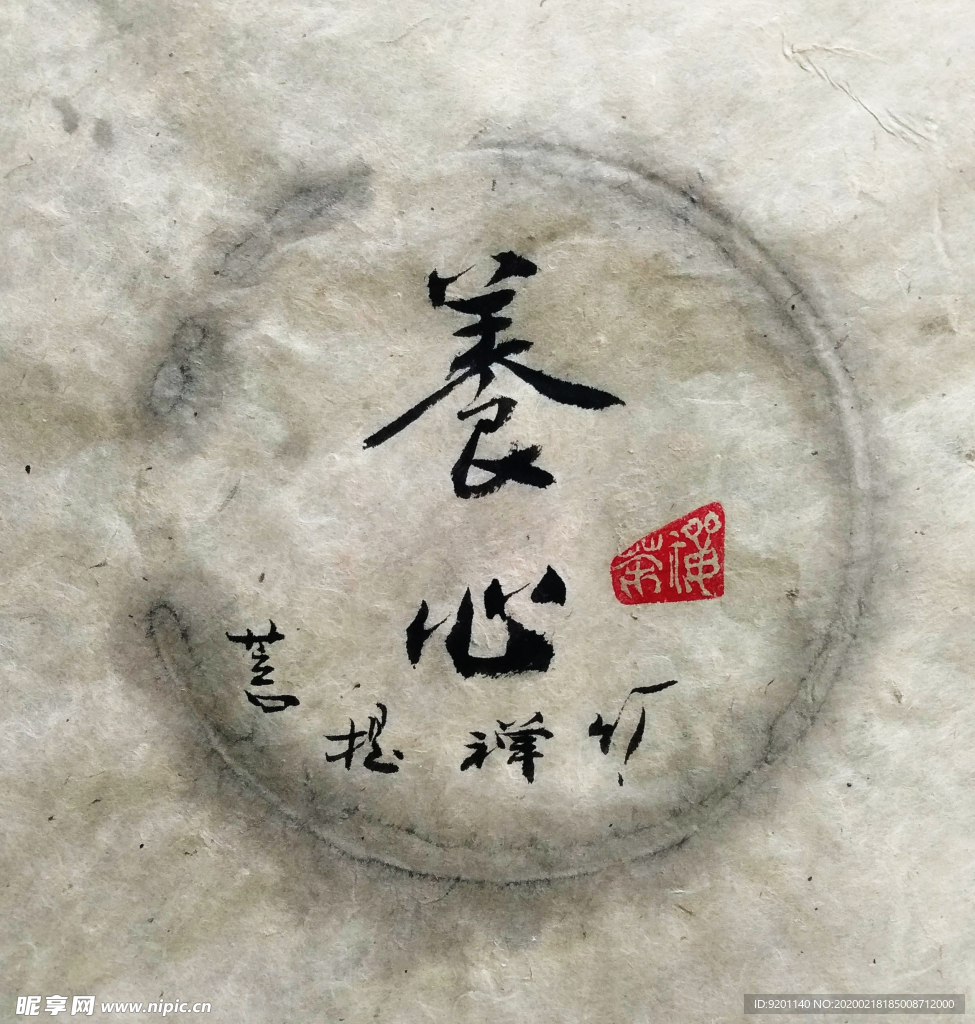 養心
禪茶
菩提禅行
昵享网 www.nipic.cn
ID:9201140 NO:20200218185008712000